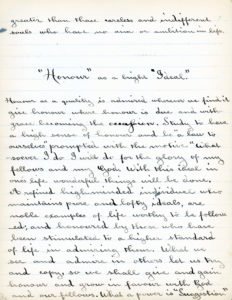 greater than those careless and indifferent
souls who have no aim or ambition in life.
"Honour" as a bright "Ideal."
Honour as a quality is admired wherever we find it
give honour where honour is due and with
grace becoming the occasion. Study to have
a high sense of honour and be "a law to
ourselves" prompted with the motive. "What
soever I do I will do for the glory of my
fellows and my God. With this ideal in
ones life wonderful things will be done.
A refined high minded individual who
maintains pure and lofty ideals, are
noble examples of life worthy to be follow
ed, and honoured by those who have
been stimulated to a higher standard
of life in admiring them. What we
see and admire in others let us try
and copy, so we shall give and gain
honour and grow in favour with God
and our fellows. What a power is "Suggestion"